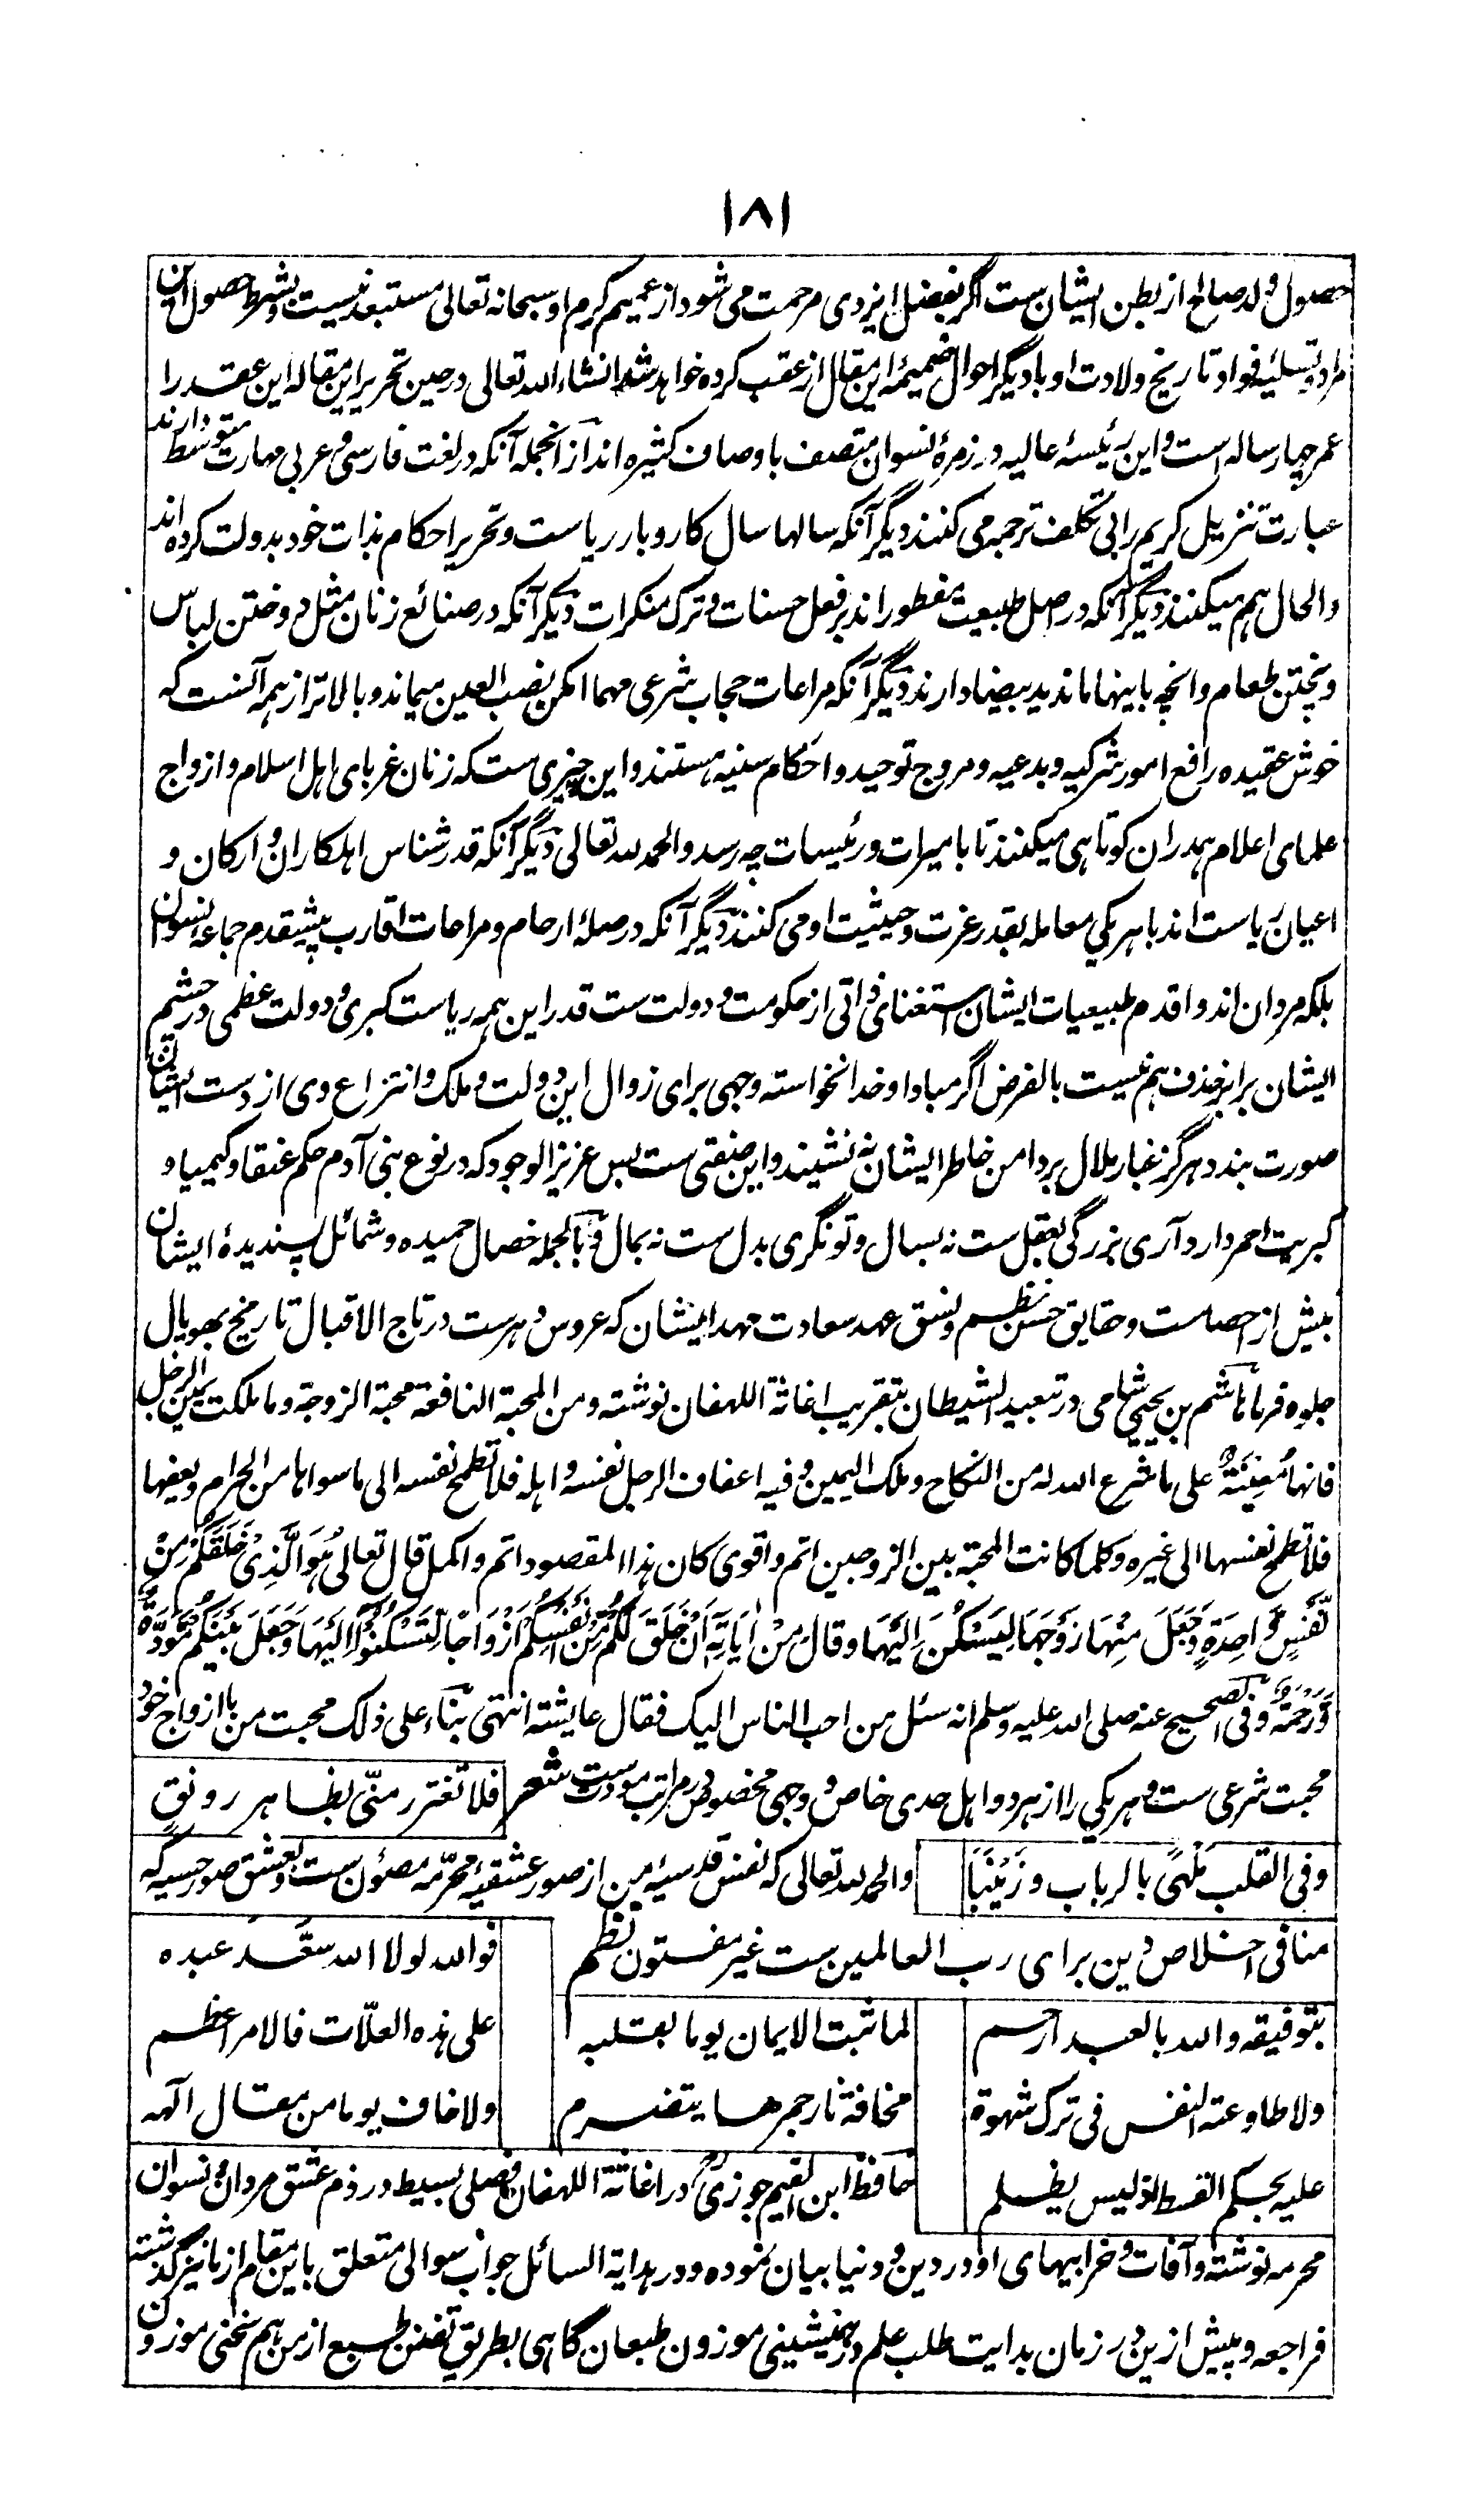 ۱۸۱
حصول ولد صالح از بطن ایشان ست اگر بفضل ایزدی مرحمت می شود از عمیم کرم او سبحانه تعالی مستبعد نیست و بشرط حصول این
مراد و تسلیهٔ فواد تاریخ ولادت او با دیگر احوال ضمیمهٔ این مقال از عقب کرده خواهد شد انشاء الله تعالی در حین تحریر این مقاله این عقد را
عمر چهار ساله است و این رئیسهٔ عالیه در زمرهٔ نسوان متصف باوصاف کثیره اند از انجمله آنکه در لغت فارسی و عربی مهارت متوسط دارند
عبارت تنزیل کریم را بی تکلف ترجمه می کنند دیگر آنکه سالها سال کاروبار ریاست و تحریر احکام بذات خود بدولت کرده اند
و الحال هم میکنند دیگر آنکه در اصل طبیعت مفطور اند بر فعل حسنات و ترک منکرات دیگر آنکه در صنائع زنان مثل دوختن لباس
و پختن طعام و انچه باینها ماند ید بیضا دارند دیگر آنکه مراعات حجاب شرعی مهما امکن نصب العین میماند و بالاتر از همه آنست که
خوش عقیده رافع امور شرکیه و بدعیه و مروج توحید و احکام سنیه هستند و این چیزی ست که زنان غربای اهل اسلام و ازواج
علمای اعلام هم دران کوتاهی میکنند تا بامیرات و رئیسات چه رسد والحمد لله تعالی دیگر آنکه قدرشناس اهلکاران و ارکان و
اعیان ریاست اند با هر یکی معامله بقدر عزت و حیثیت او می کنند دیگر آنکه در صلهٔ ارحام و مراعات اقارب پیشقدم جماعه نسوان
بلکه مردان اند و اقدم طبیعیات ایشان استغنای ذاتی از حکومت و دولت ست قدر این همه ریاست کبری و دولت عظمی در چشم
ایشان برابر خذف هم نیست بالفرض اگر مبادا و خدا نخواسته وجهی برای زوال این دولت و ملک و انتزاع وی از دست ایشان
صورت بندد هرگز غبار ملال بر دامن خاطر ایشان نه نشیند و این صفتی ست بس عزیز الوجود که در نوع بنی آدم حکم عنقا و کیمیا و
کبریت احمر دارد آری بزرگی بعقل ست نه بسال و تونگری بدل ست نه بمال و بالجمله خصال حمیده و شمائل پسندیدهٔ ایشان
بیش از احصاست و حقایق حسن نظم و نسق عهد سعادت مهد ایشان که عروس دهرست در تاج الاقبال تاریخ بهوپال
جلوه فرما هاشم بن یحیی شامی در تبعید الشیطان بتقریب اغاثة اللهفان نوشته ومن المحبة النافعة محبة الزوجة وما ملکت یمین الرجل
فانها مُعِینَةٌ علی ما شرع الله له من النکاح وملک الیمین وفیه اعفاف الرجل نفسه و اهله فلا تطمح نفسه الی ما سواها من الحرام ویعفها
فلا تطمح نفسها الی غیره وکلما کانت المحبة بین الزوجین اتم واقوی کان هذا المقصود اتم واکمل قال تعالی هُوَ الَّذِیْ خَلَقَکُمْ مِنْ
نَّفْسٍ وَّاحِدَةٍ وَّجَعَلَ مِنْهَا زَوْجَهَا لِیَسْکُنَ اِلَیْهَا وقال مِنْ اٰیَاتِهٖ اَنْ خَلَقَ لَکُمْ مِّنْ اَنْفُسِکُمْ اَزْوَاجًا لِّتَسْکُنُوْا اِلَیْهَا وَجَعَلَ بَیْنَکُمْ مَّوَدَّةً
وَّرَحْمَةً وفی الصحیح عنه صلی الله علیه وسلم انه سئل من احب الناس الیک فقال عایشة انتهی بناء علی ذلک محبت من با ازواج خود
محبت شرعی ست و هر یکی را از هر دو اهل حدی خاص و وجهی مخصوص در مراتب مودت ست شعر فلا تغترر منّی بظاهر رونقٍ
وفی القلب مَلْهیً بالرباب وزَیْنَبَا والحمد لله تعالی که نفس قدسیهٔ من از صور عشقیهٔ محرّمه مصئون ست و بعشق صور حسیه که
منافی اخلاص دین برای رب العالمین ست غیر مفتون نظم فوالله لولا الله سَعَّدَ عبده
بتوفیقه والله بالعبد ارحم لما ثبت الایمان یوما بقلبه علی هذه العلّات فالامر اعظم
ولا طاوعته النفس فی ترک شهوة مخافة نار جمرها یتضرم ولا خاف یوما من مقال الهه
علیه بحکم القسط اذ لیس یظلم حافظ ابن القیم جوزی رح در اغاثة اللهفان فصلی بسیط در ذم عشق مردان و نسوان
محرمه نوشته و آفات و خرابیهای او در دین و دنیا بیان نموده و در هدایة السائل جواب سوالی متعلق باین مقام از ما نیز گذشته
فراجعه و پیش ازین در زمان بدایت طلب علم و همنشینی موزون طبعان گاهی بطریق تفنن طبع از من هم سخنی موزون